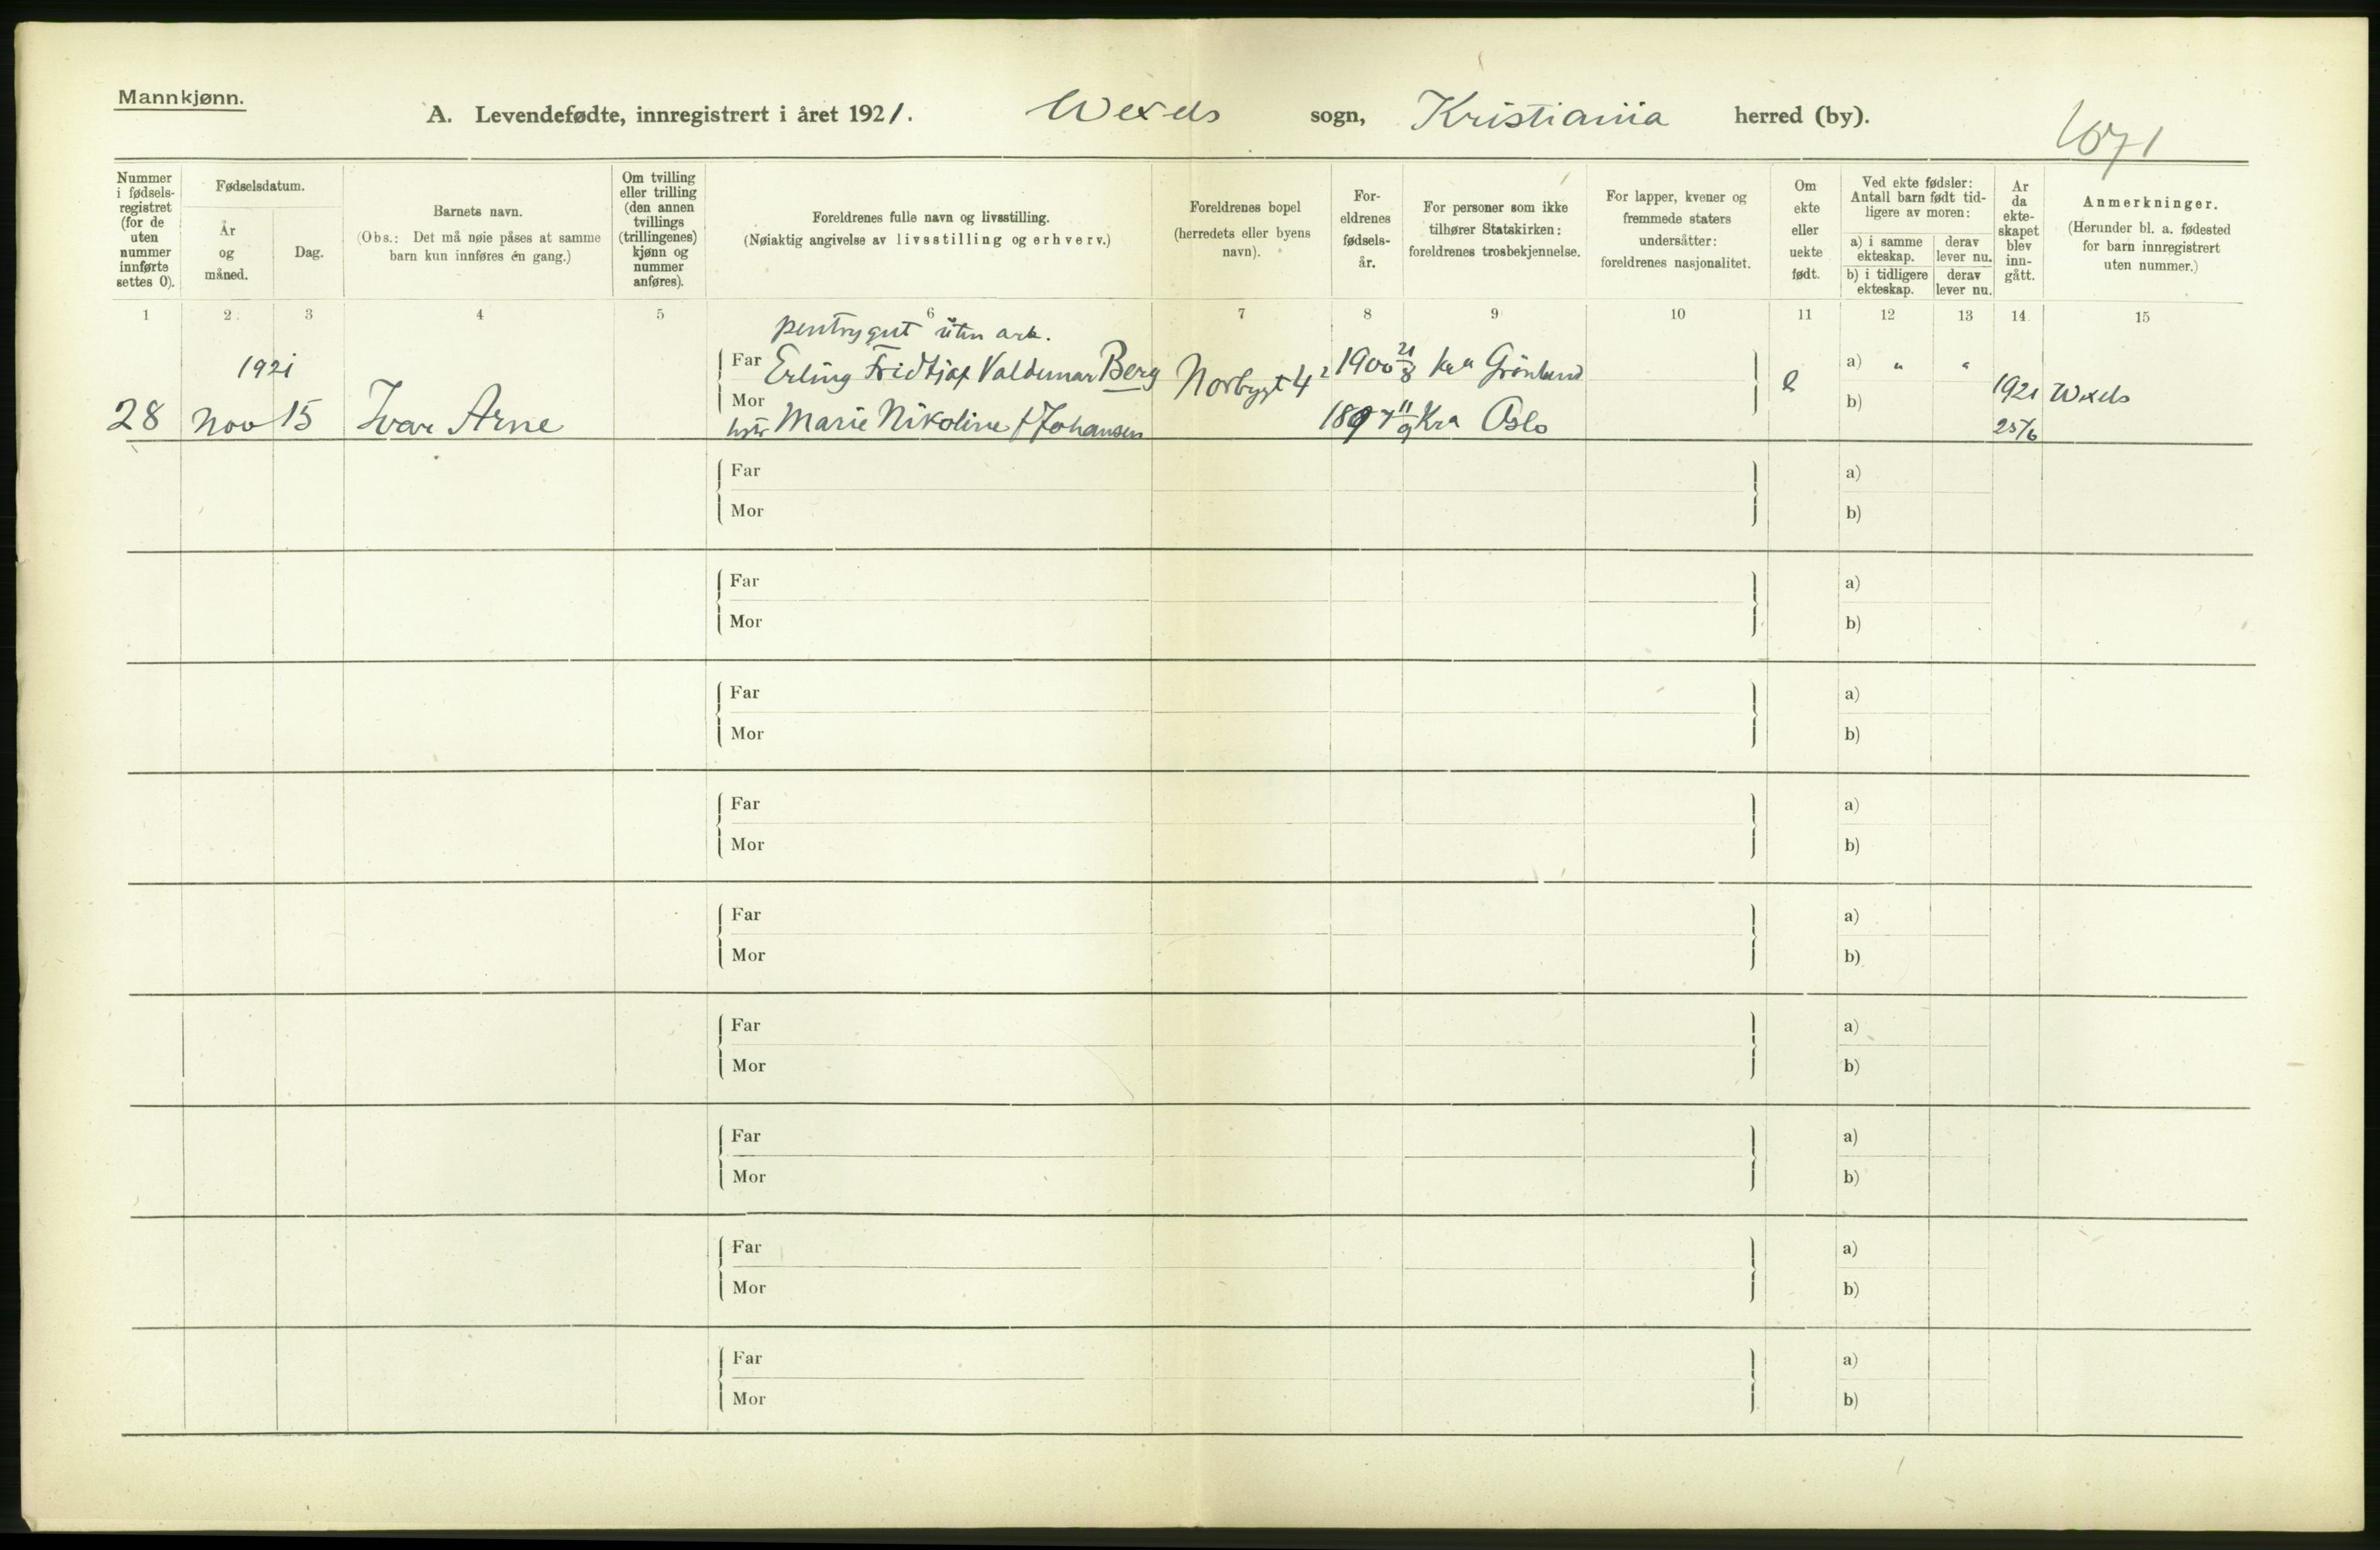 Mannkjønn.
A. Levendefødte, innregistrert i året 1921. Wexels sogn, Kristiania herred (by).
1671
Nummer i fødsels-registret (for de uten nummer innførte settes 0).
Fødselsdatum.
År og måned.
Dag.
Barnets navn.
(Obs.: Det må nøie påses at samme barn kun innføres én gang.)
Om tvilling eller trilling (den annen tvillings (trillingenes) kjønn og nummer anføres).
Foreldrenes fulle navn og livsstilling.
(Nøiaktig angivelse av livsstilling og erhverv.)
Foreldrenes bopel (herredets eller byens navn).
For-eldrenes fødsels-år.
For personer som ikke tilhører Statskirken: foreldrenes trosbekjennelse.
For lapper, kvener og fremmede staters undersåtter: foreldrenes nasjonalitet.
Om ekte eller uekte født.
Ved ekte fødsler: Antall barn født tid-ligere av moren:
a) i samme ekteskap.
derav lever nu.
b) i tidligere ekteskap.
derav lever nu.
År da ekte-skapet blev inn-gått.
Anmerkninger.
(Herunder bl. a. fødested for barn innregistrert uten nummer.)
1 2 3 4 5 6 7 8 9 10 11 12 13 14 15
pentrygut uten arb.
1921 Far Erling Fridtjof Valdemar Berg Norbygt 4² 1900 21/8 Kra Grønland e a) " "
28 Nov 15 Ivar Arne Mor Marie Nikoline f Johansen 1897 11/9 Kra Oslo b) 1921 25/6 Wexels
Far a)
Mor b)
Far a)
Mor b)
Far a)
Mor b)
Far a)
Mor b)
Far a)
Mor b)
Far a)
Mor b)
Far a)
Mor b)
Far a)
Mor b)
Far a)
Mor b)